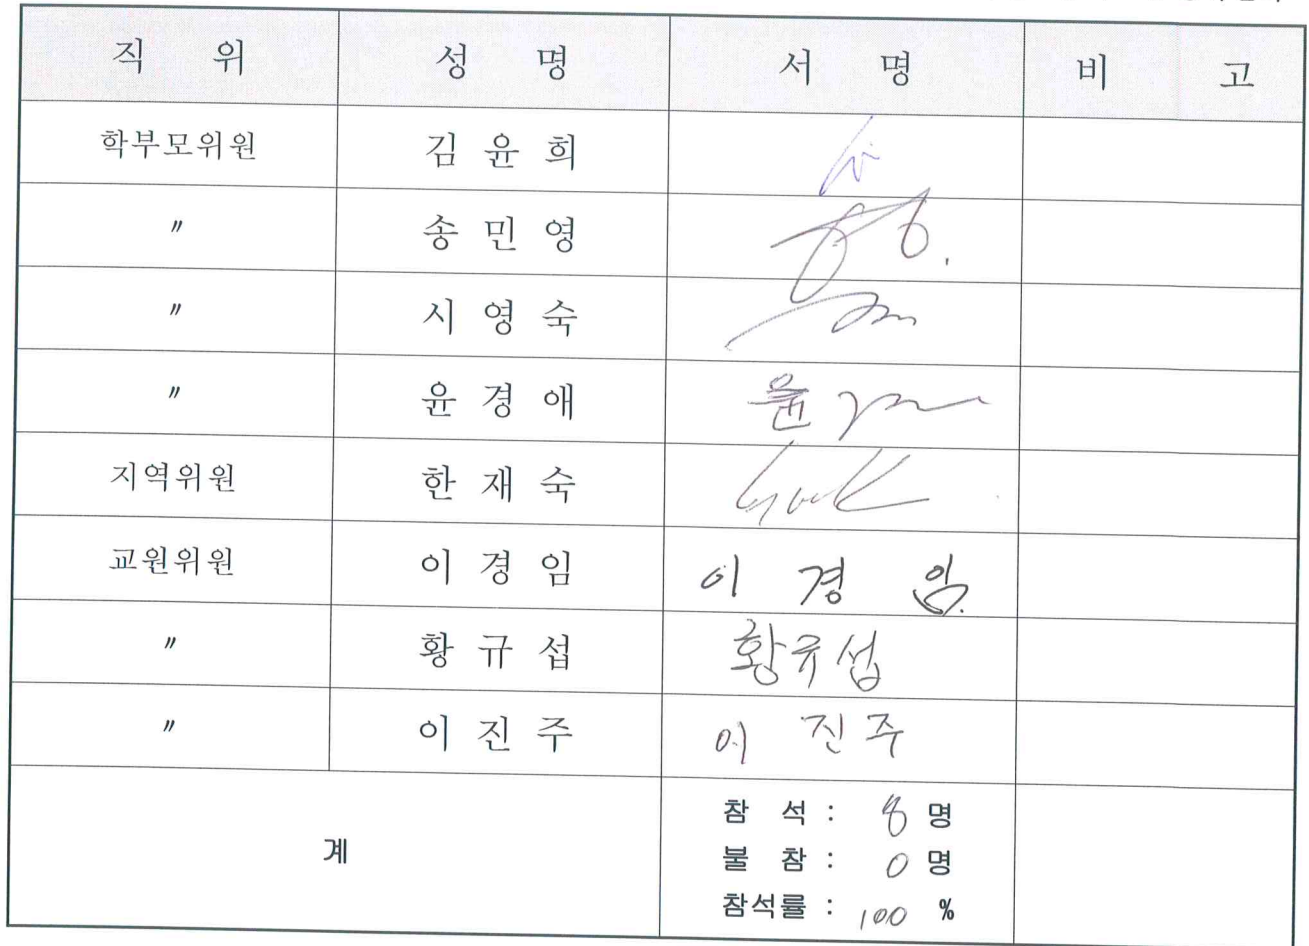 직 위 성 명 서 명 비 고
학부모위원 김 윤 희
〃 송 민 영
〃 시 영 숙
〃 윤 경 애 윤
지역위원 한 재 숙
교원위원 이 경 임 이 경 임
〃 황 규 섭 황규섭
〃 이 진 주 이 진주
계
참 석 : 8 명
불 참 : 0 명
참석률 : 100 %